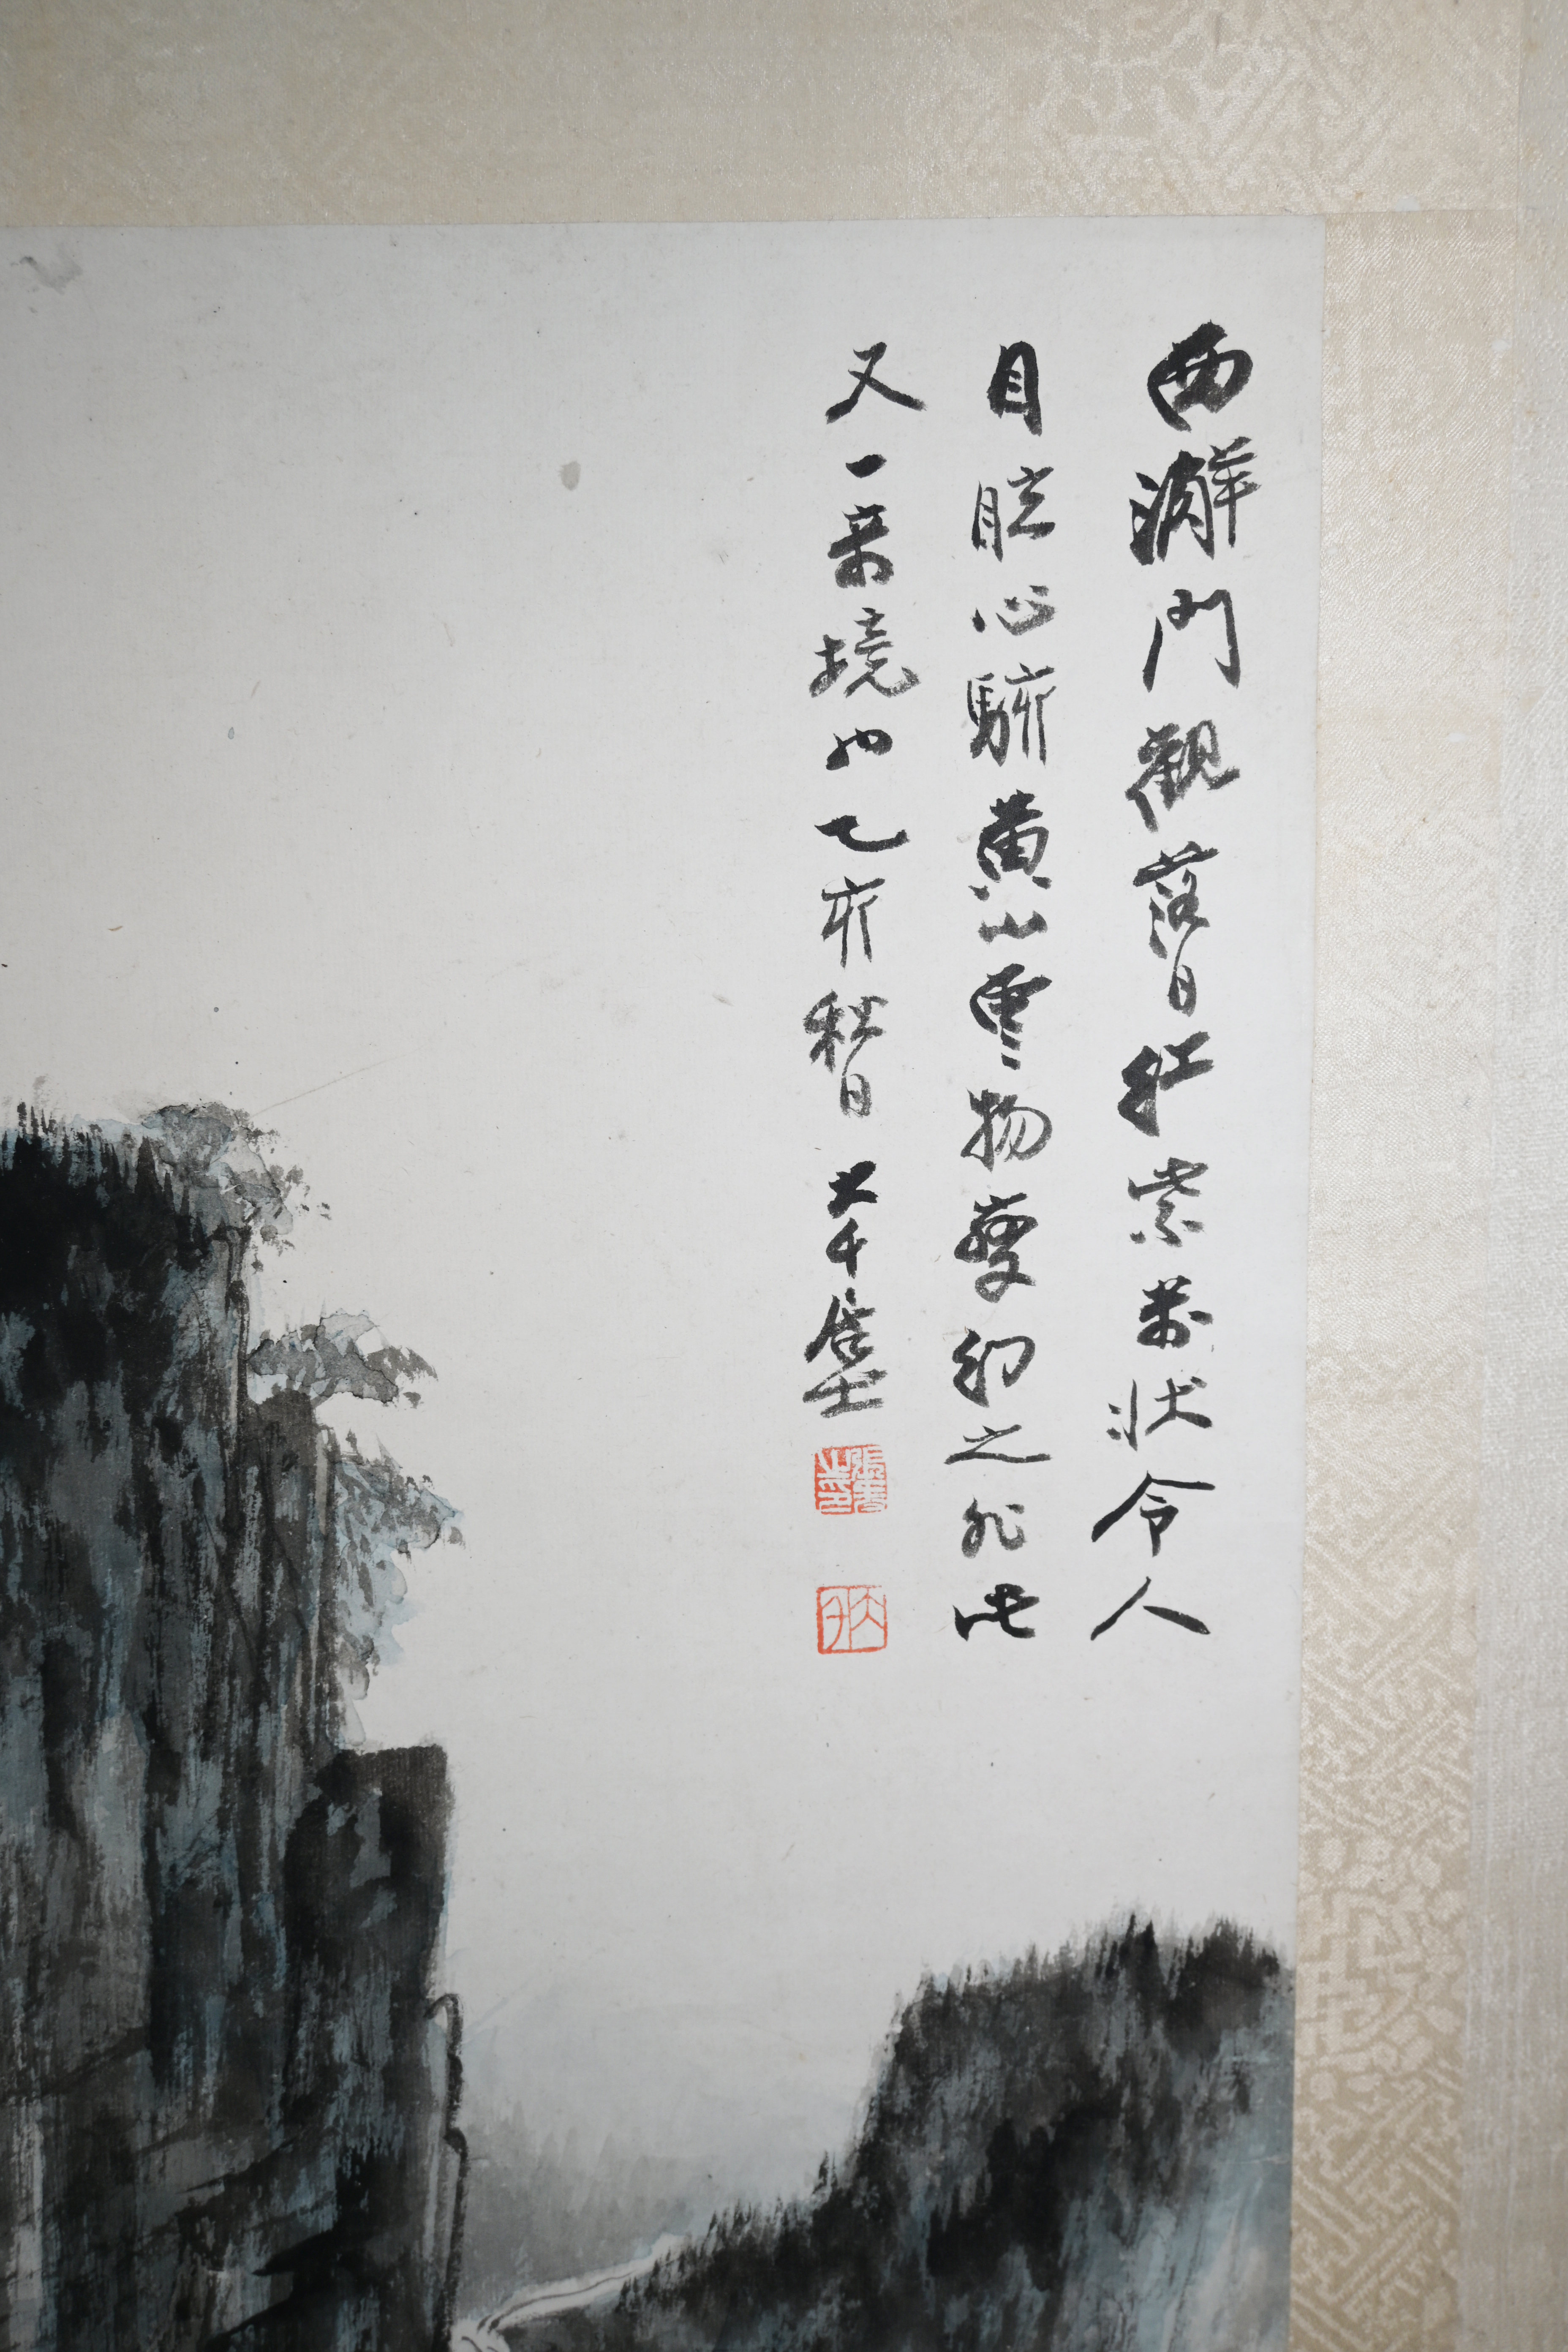 西澥門觀落日紅紫萬狀令人
目眩心駭黃山雲物變幻之外此
又一境也乙亥秋日大千居士
張爰之印
大千